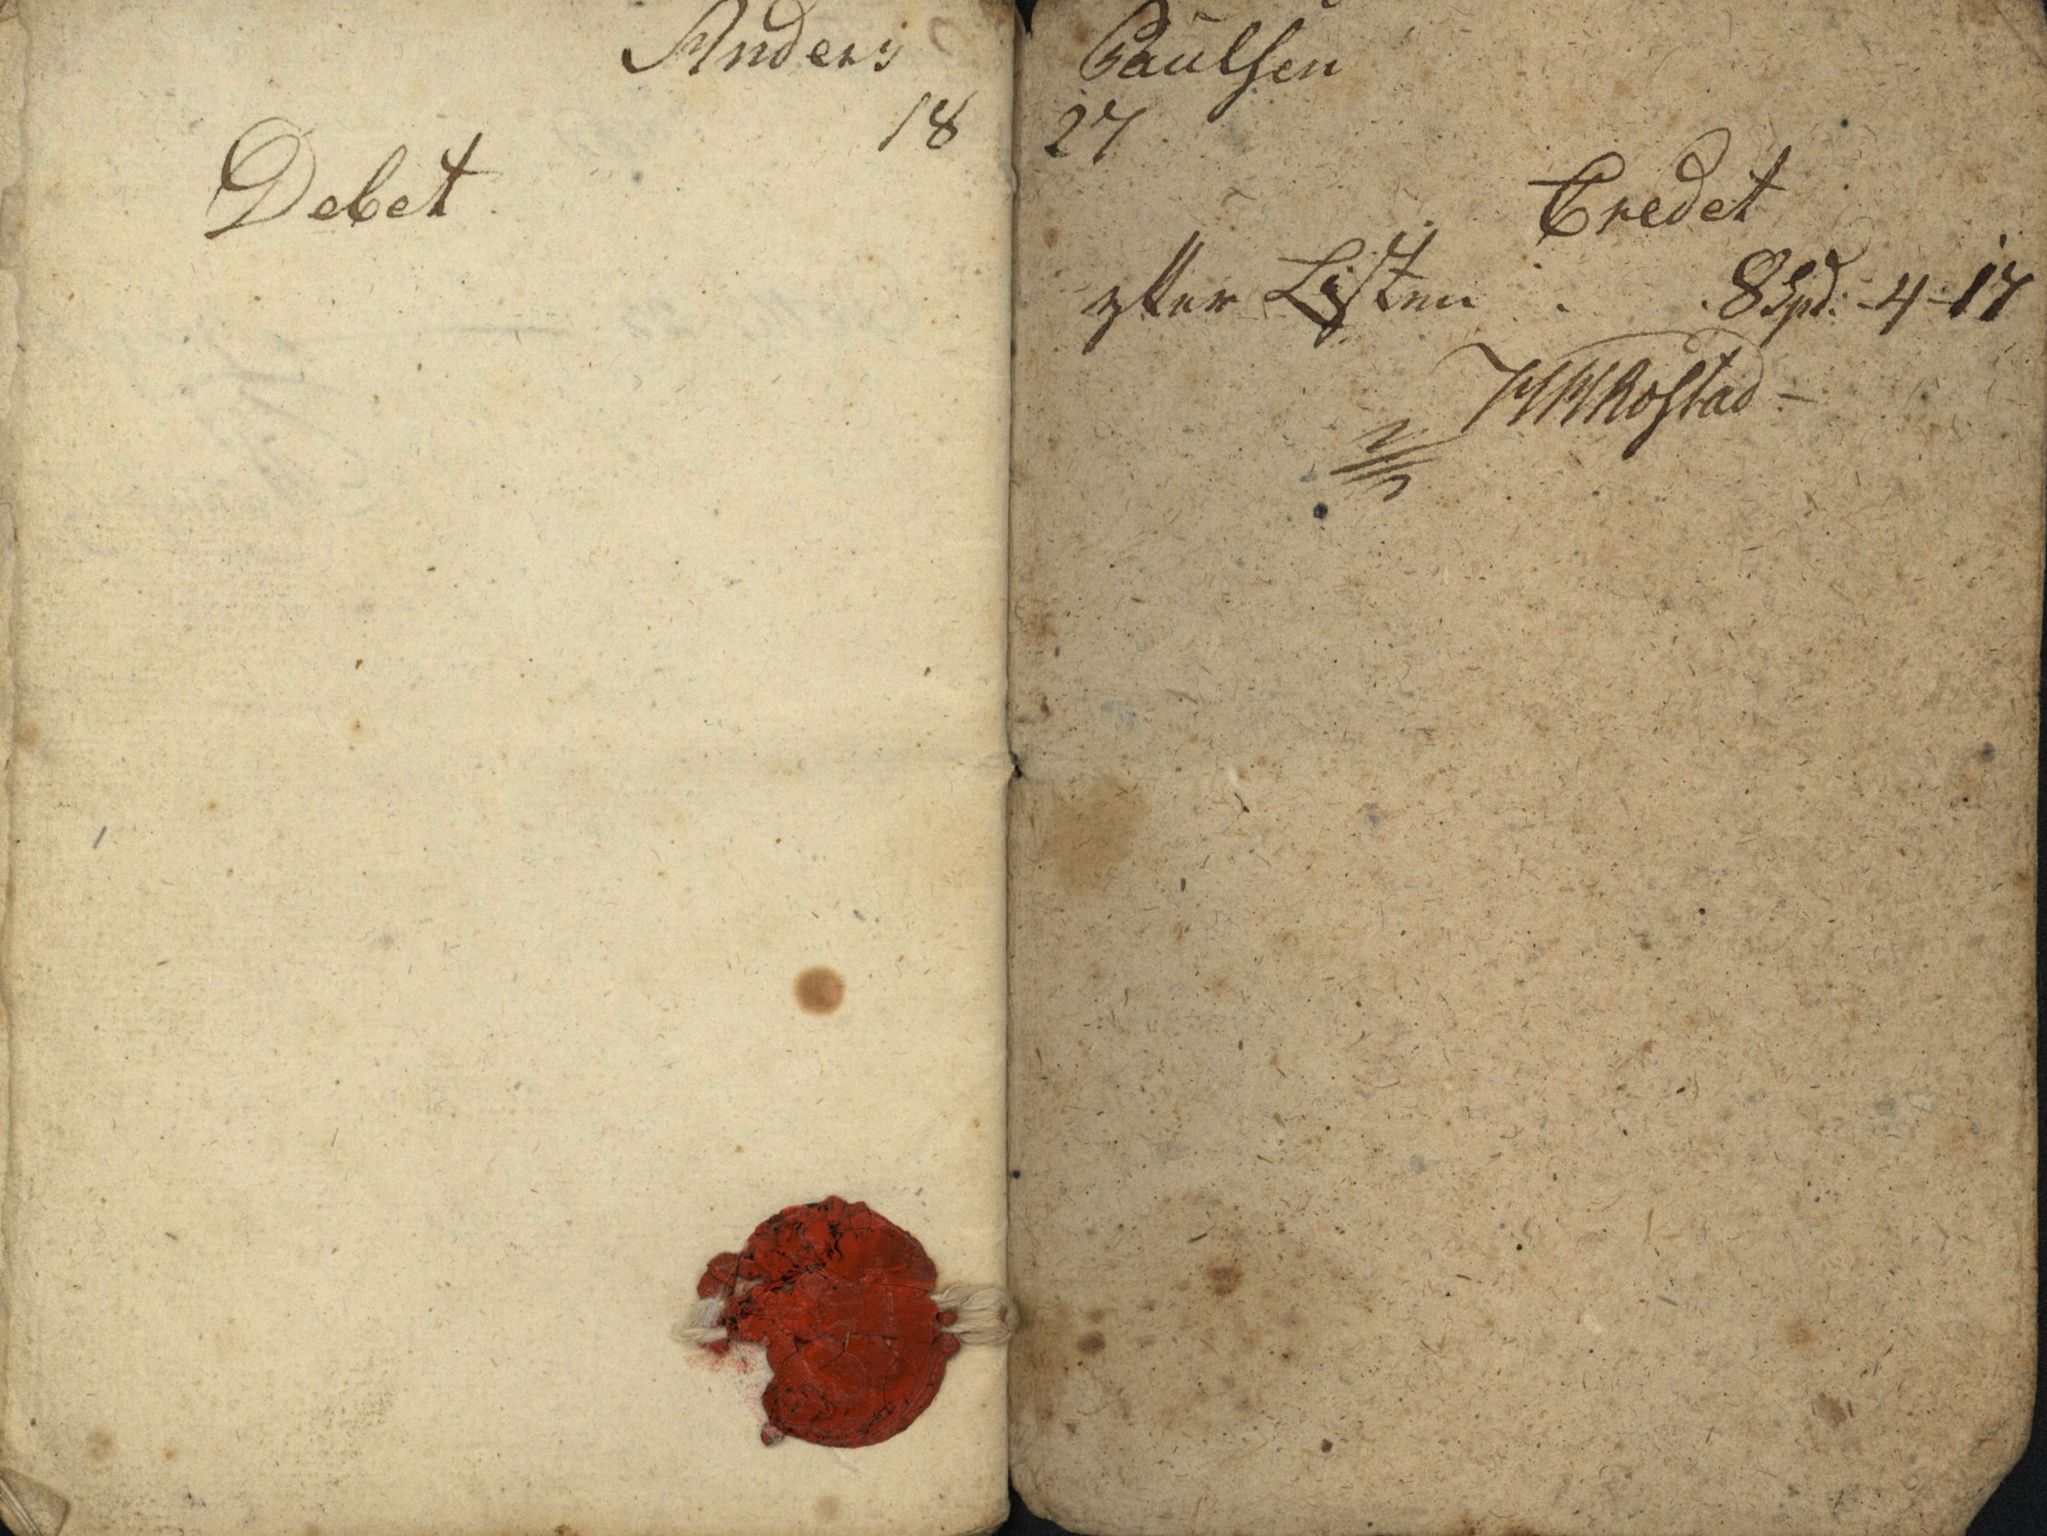 Anders Paulsen
18 27
Debet
Credet
efter Listen . . 8 Spd: -4-17
Rostad